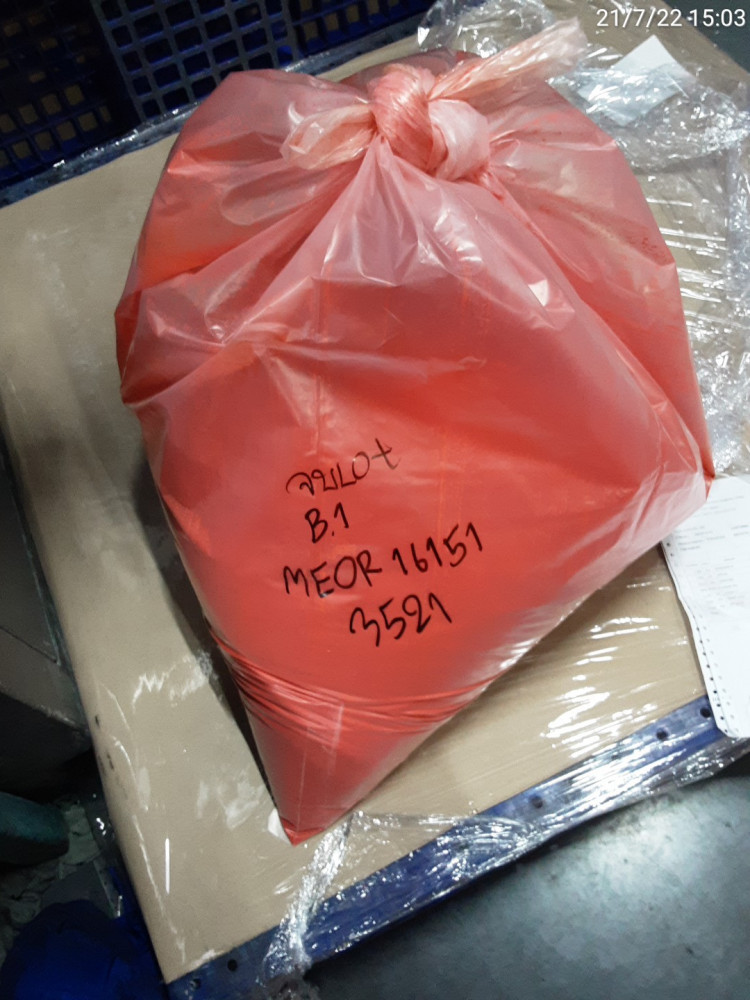 21/7/22 15:03
จบLOt
B.1
MEOR 16151
3521